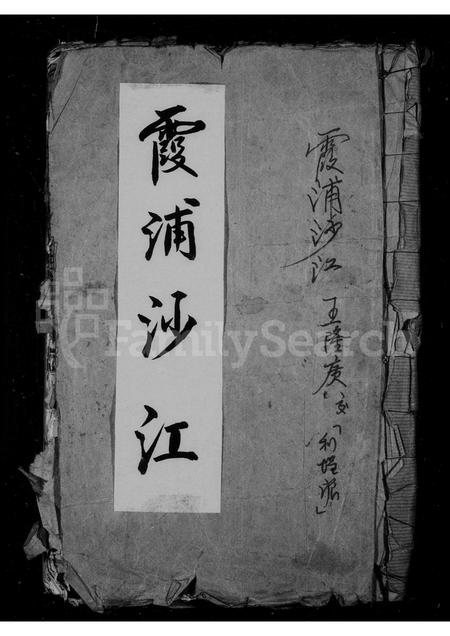 霞浦沙江 王隆庚交「利埕派」
霞浦沙江
FamilySearch